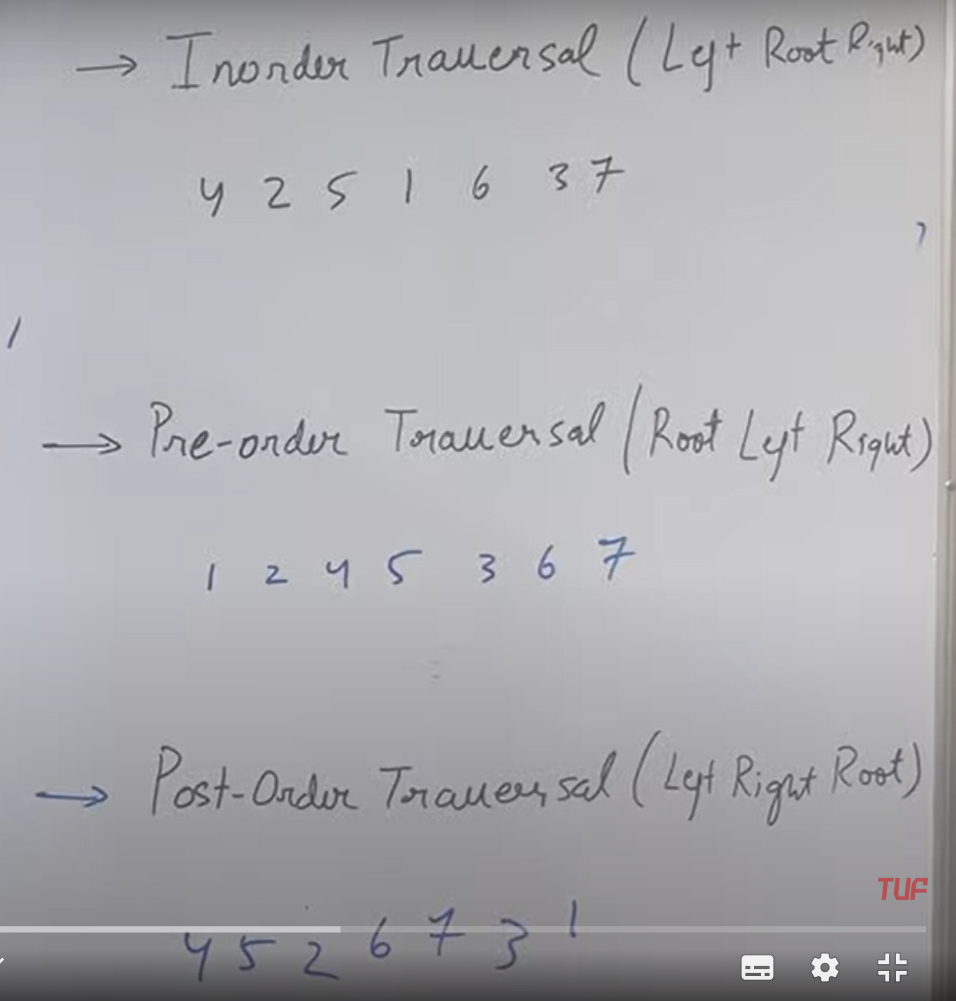 → Inorder Traversal (Left Root Right)
4 2 5 1 6 3 7
→ Pre-order Traversal (Root Left Right)
1 2 4 5 3 6 7
→ Post-Order Traversal (Left Right Root)
TUF
4 5 2 6 7 3 1